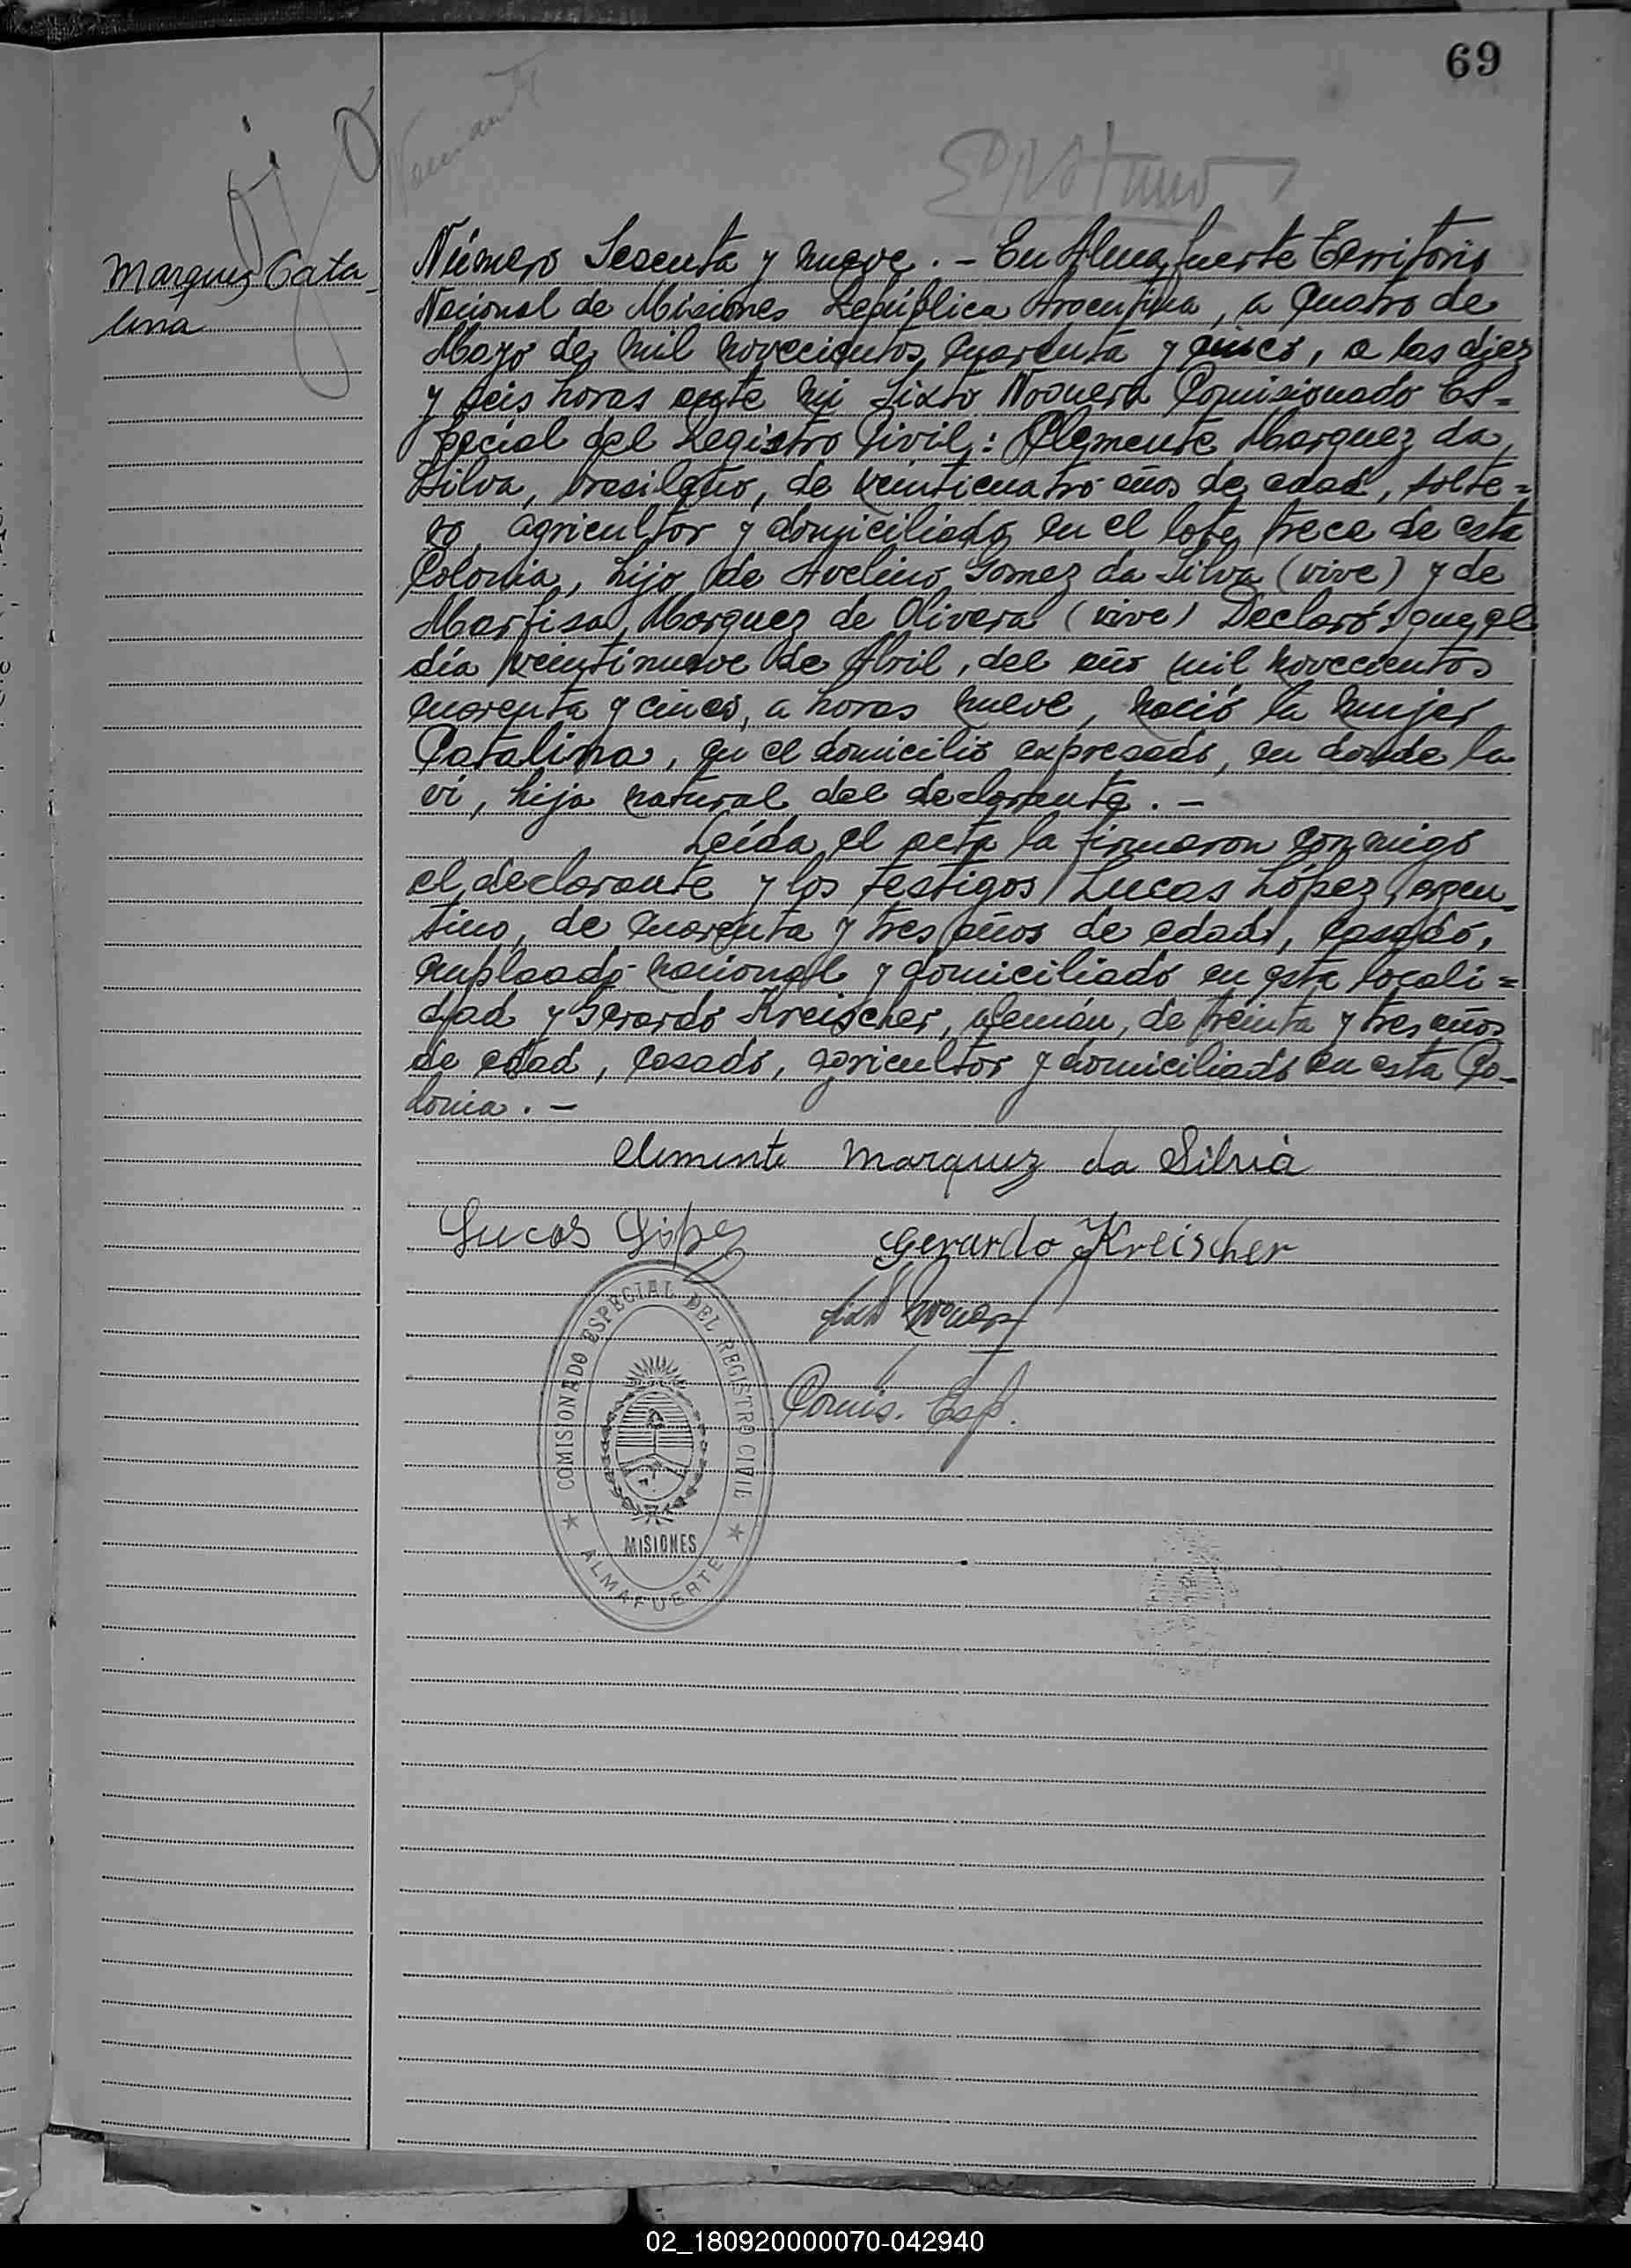 69
Marquez Cata-
lina
Número Sesenta y nueve. - En Almafuerte Territorio
Nacional de Misiones República Argentina, a Cuatro de
Mayo de mil novecientos cuarenta y cinco, a las diez
y seis horas ante mi Sixto Noguera Comisionado Es=
pecial del Registro Civil: Clemente Marquez da
Silva, brasileño, de veinticuatro años de edad, solte=
ro, agricultor y domiciliado en el lote trece de esta
Colonia, hijo de Avelino Gomez da Silva (vive) y de
Marfisa Marquez de Olivera (vive) Declaró: que, el
día veintinueve de Abril, del año mil novecientos
cuarenta y cinco, a horas nueve, nació la mujer
Catalina, en el domicilio expresado, en donde la
vi, hija natural del declarante. -
Leída el acta la firmaron conmigo
el declarante y los testigos Lucas López, argen-
tino, de cuarenta y tres años de edad, casado,
empleado nacional y domiciliado en esta locali=
dad y Gerardo Kreischer, alemán, de treinta y tres años
de edad, casado, agricultor y domiciliado en esta Co-
lonia. -
Clemente Marquez da Silvia
Lucas López Gerardo Kreischer
Sixto Noguera
Comis. Esp.
COMISIONADO ESPECIAL DEL REGISTRO CIVIL
MISIONES
ALMAFUERTE
02_180920000070-042940